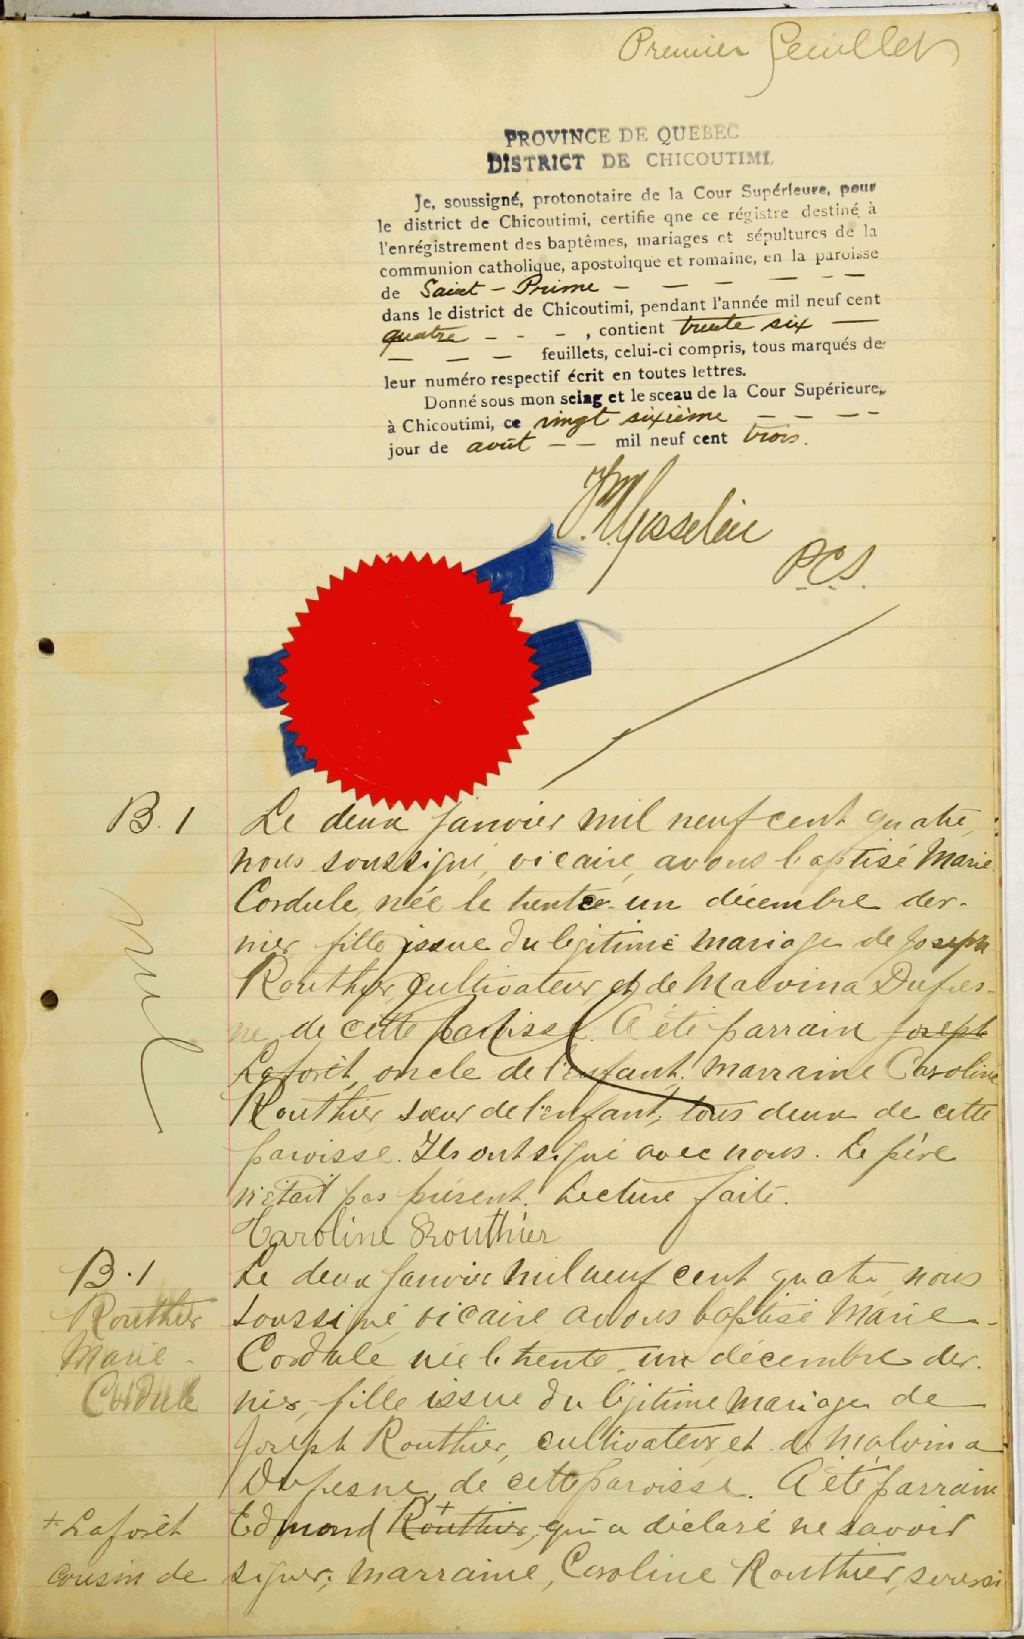 Premier feuillet
PROVINCE DE QUEBEC
DISTRICT DE CHICOUTIMI,
Je, soussigné, protonotaire de la Cour Supérieure, pour
le district de Chicoutimi, certifie qne ce régistre destiné à
l'enrégistrement des baptêmes, mariages et sépultures de la
communion catholique, apostolique et romaine, en la paroisse
de Saint - Prime - - - - - -
dans le district de Chicoutimi, pendant l'année mil neuf cent
quatre - - - , contient trente six —
— — — feuillets, celui-ci compris, tous marqués de
leur numéro respectif écrit en toutes lettres.
Donné sous mon seiag et le sceau de la Cour Supérieure,
à Chicoutimi, ce vingt sixième - - - -
jour de août - - mil neuf cent trois.
P.C.S.
B. 1 Le deux janvier mil neuf cent quatre,
nous soussigné, vicaire, avons baptisé Marie
Cordule, née le trente-un décembre der-
nier fille issue du légitime mariage de Joseph
Routhier cultivateur et de Malvina Dufres-
ne de cette paroisse. A été parrain Joseph
Laforêt, oncle de l'enfant, marraine Caroline
Routhier sœur de l'enfant, tous deux de cette
paroisse. Ils ont signé avec nous. Le père
n'était pas présent. Lecture faite.
nul
Caroline Routhier
B. 1 Le deux Janvier mil neuf cent quatre nous
Routhier soussigné vicaire avons baptisé Marie -
Marie - Cordule née le trente-un décembre der-
Cordule nier, fille issue du légitime mariage de
Joseph Routhier, cultivateur et de Malvina
Dufresne, de cette paroisse. A été parrain
+ Laforêt Edmond Routhier +, qui a déclaré ne savoir
cousin de signer; marraine, Caroline Routhier, soussi